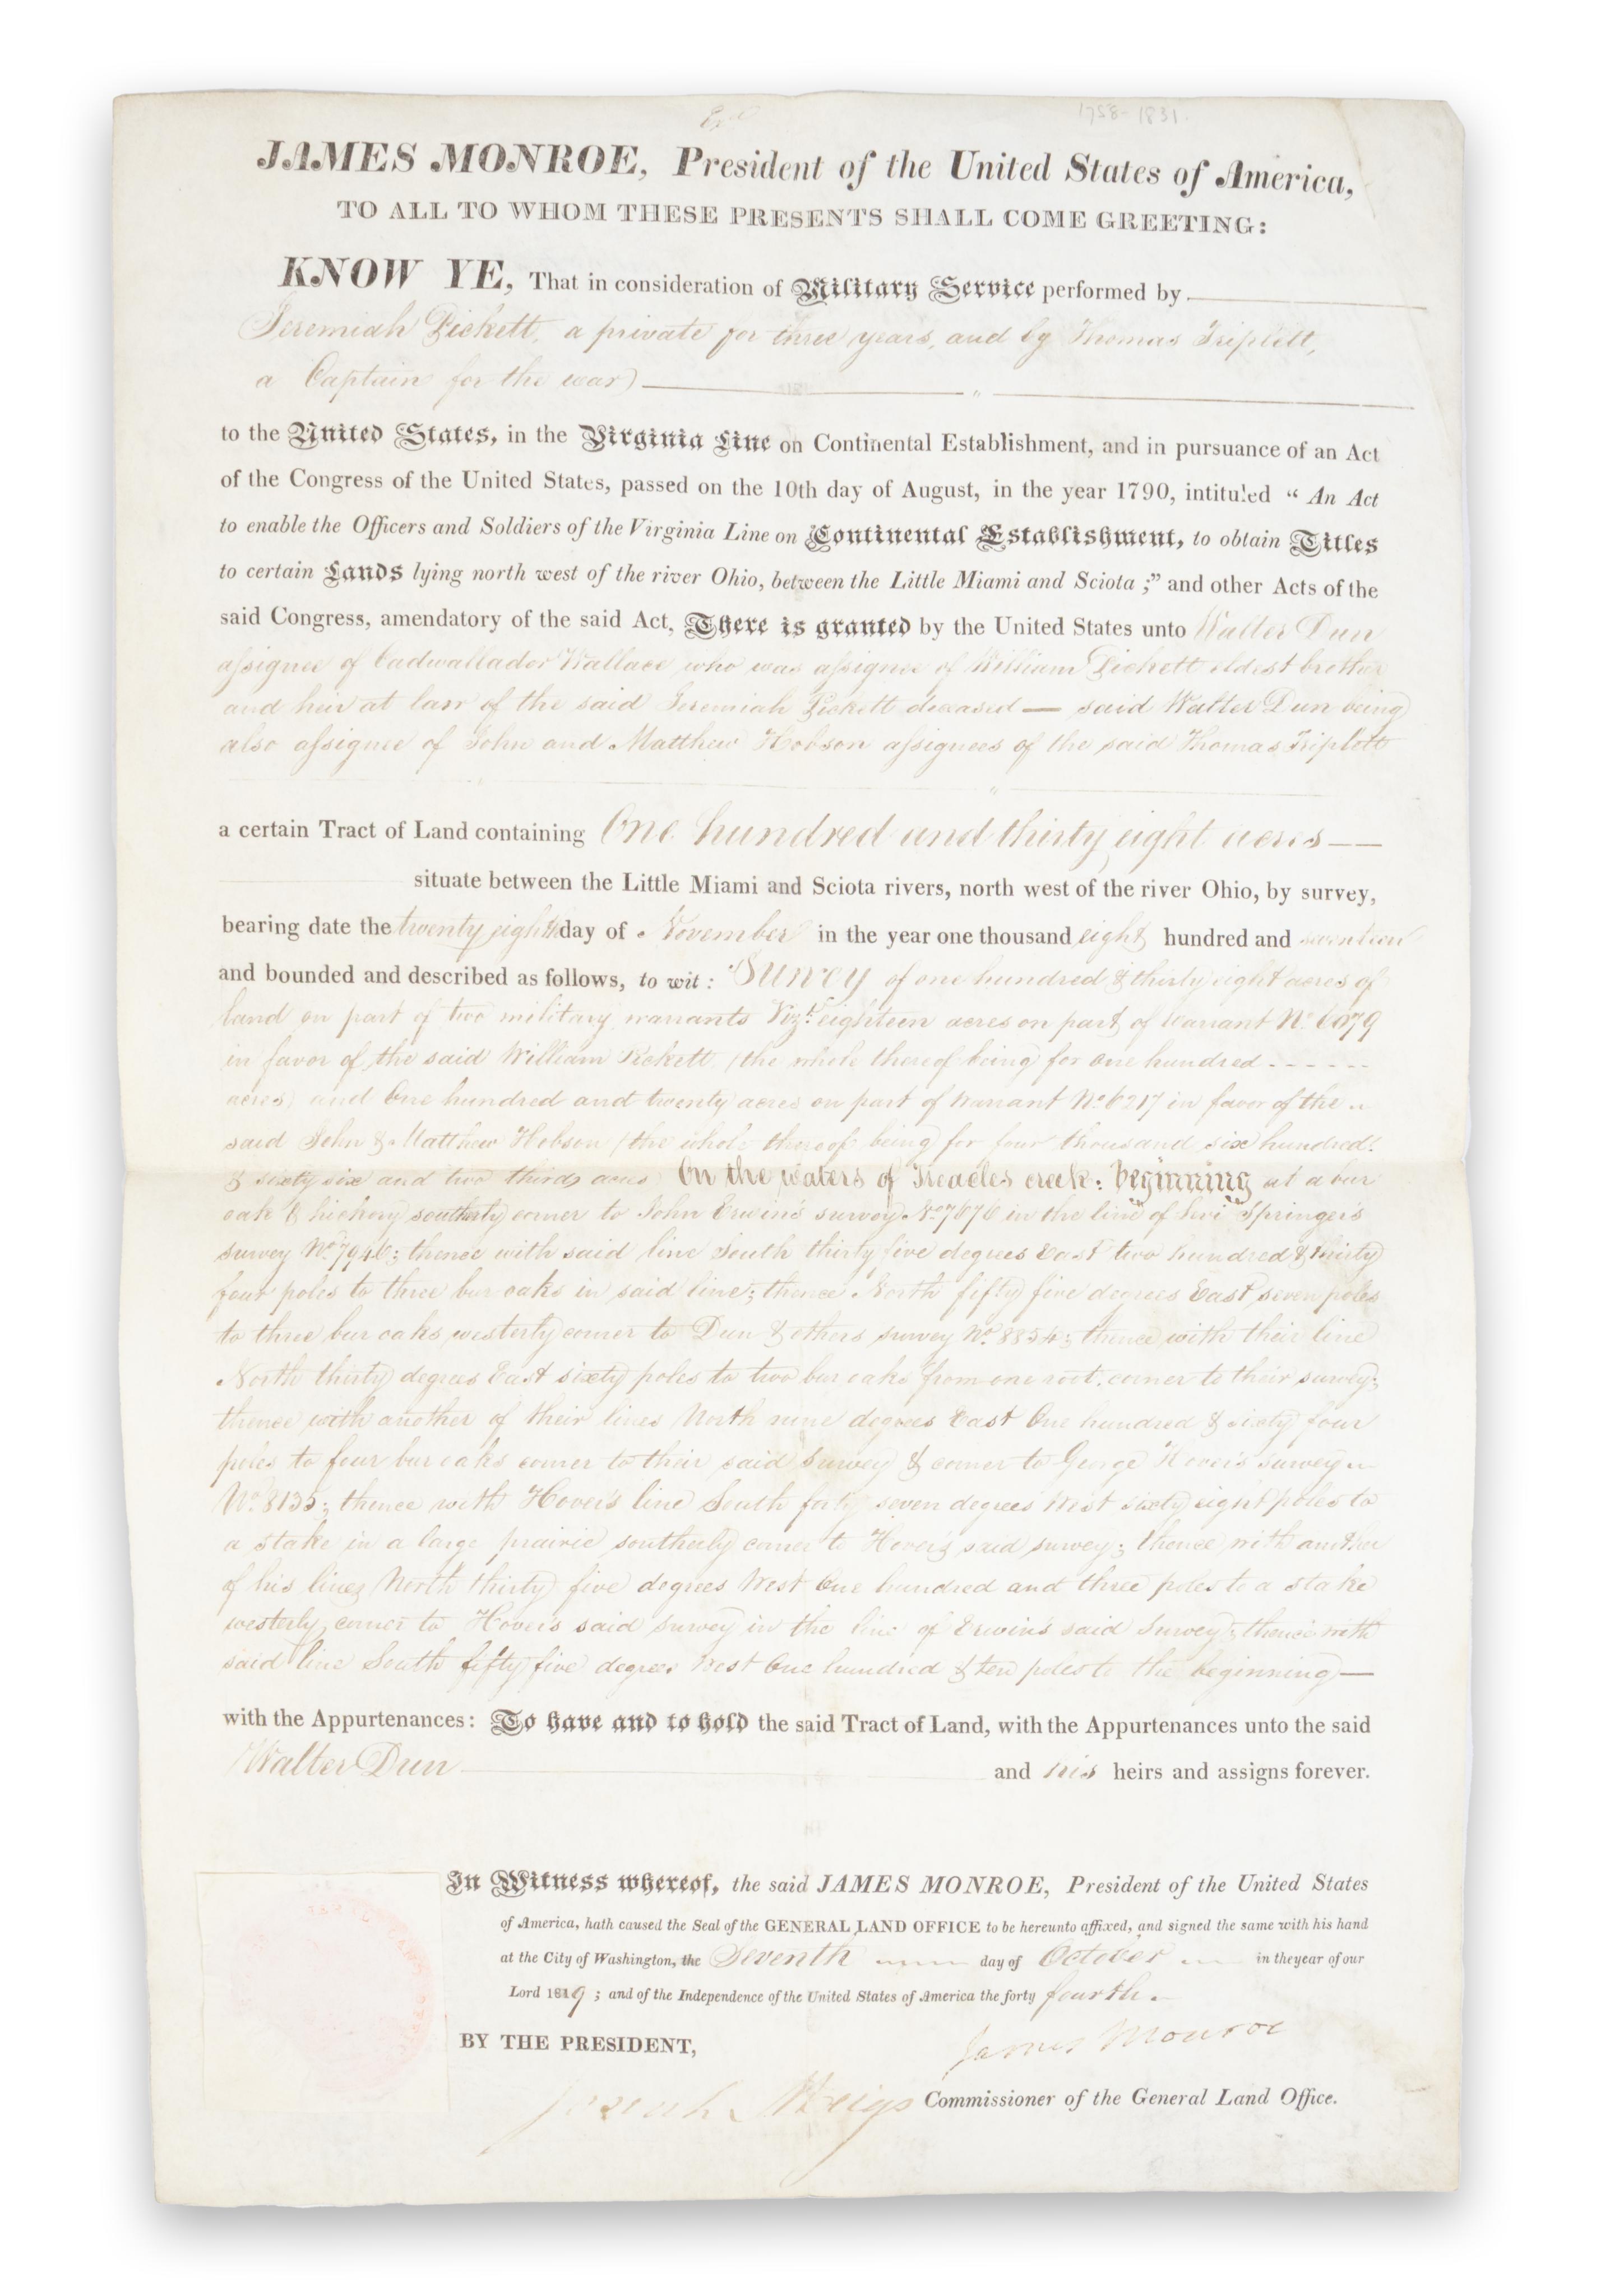 1758-1831.
JAMES MONROE, President of the United States of America,
TO ALL TO WHOM THESE PRESENTS SHALL COME GREETING:
KNOW YE, That in consideration of Military Service performed by
Jeremiah Pickett, a private for three years, and by Thomas Triplett,
a Captain for the war)
to the United States, in the Virginia Line on Continental Establishment, and in pursuance of an Act
of the Congress of the United States, passed on the 10th day of August, in the year 1790, intituled “ An Act
to enable the Officers and Soldiers of the Virginia Line on Continental Establishment, to obtain Titles
to certain Lands lying north west of the river Ohio, between the Little Miami and Sciota ;” and other Acts of the
said Congress, amendatory of the said Act, There is granted by the United States unto Walter Dun
assignee of Cadwallader Wallace who was assignee of William Pickett eldest brother
and heir at law of the said Jeremiah Pickett deceased — said Walter Dun being
also assignee of John and Matthew Hobson assignees of the said Thomas Triplett
a certain Tract of Land containing One hundred and thirty eight acres
situate between the Little Miami and Sciota rivers, north west of the river Ohio, by survey,
bearing date the twenty eighth day of November in the year one thousand eight hundred and seventeen
and bounded and described as follows, to wit : Survey of one hundred & thirty eight acres of
land on part of two military warrants Vizt. eighteen acres on part of Warrant No. 6079
in favor of the said William Pickett (the whole thereof being for one hundred
acres) and One hundred and twenty acres on part of Warrant No 6217 in favor of the
said John & Matthew Hobson (the whole thereof being for four thousand six hundred
& sixty six and two thirds acres) On the waters of Treacles creek: beginning at a bur
oak & hickory southerly corner to John Erwin's survey No. 7676 in the line of Levi Springer's
survey No. 7946; thence with said line South thirty five degrees East two hundred & thirty
four poles to three bur oaks in said line; thence North fifty five degrees East seven poles
to three bur oaks westerly corner to Dun & others survey No. 8854; thence with their line
North thirty degrees East sixty poles to two bur oaks from one root corner to their survey;
thence with another of their lines North nine degrees East One hundred & sixty four
poles to four bur oaks corner to their said survey & corner to George Hover's survey
No. 8135; thence with Hover's line South forty seven degrees West sixty eight poles to
a stake in a large prairie southerly corner to Hover's said survey; thence with another
of his lines North thirty five degrees West One hundred and three poles to a stake
westerly corner to Hover's said survey in the line of Erwin's said Survey; thence with
said line South fifty five degrees West One hundred & ten poles to the beginning —
with the Appurtenances : To have and to hold the said Tract of Land, with the Appurtenances unto the said
Walter Dun and his heirs and assigns forever.
In Witness whereof, the said JAMES MONROE, President of the United States
of America, hath caused the Seal of the GENERAL LAND OFFICE to be hereunto affixed, and signed the same with his hand
at the City of Washington, the Seventh day of October in the year of our
Lord 1819 ; and of the Independence of the United States of America the forty fourth.
James Monroe
BY THE PRESIDENT,
Josiah Meigs Commissioner of the General Land Office.